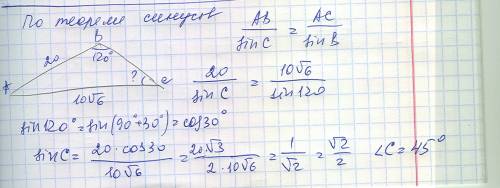 По теореме синусов
AB/sin C = AC/sin B
B
120°
20
?
A
C
10√6
20/sin C = 10√6/sin 120
sin 120° = sin(90°+30°) = cos 30°
sin C = 20·cos 30/10√6 = 20√3/2·10√6 = 1/√2 = √2/2 ∠C = 45°